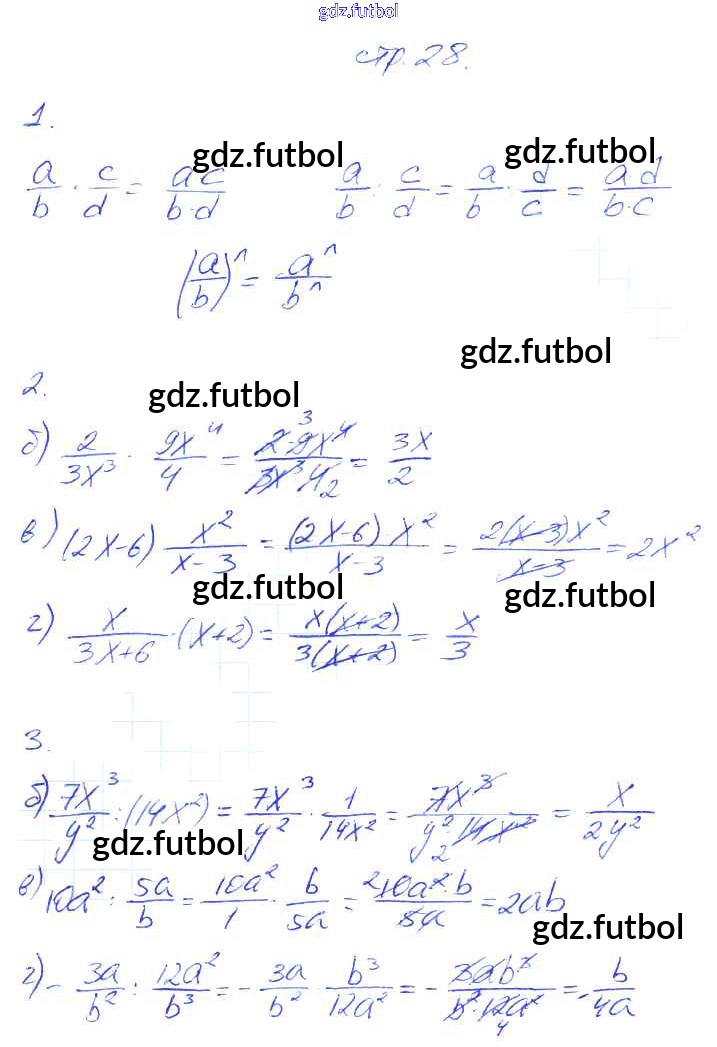 gdz.futbol
стр. 28.
1.
gdz.futbol gdz.futbol
a/b · c/d = ac/b·d a/b : c/d = a/b · d/c = ad/b·c
(a/b)^n = a^n/b^n
gdz.futbol
2.
gdz.futbol
б) 2/3x³ · 9x⁴/4 = 2·9x⁴/3x³·4 = 3x/2
в) (2x-6) · x²/x-3 = (2x-6)x²/x-3 = 2(x-3)x²/x-3 = 2x²
gdz.futbol gdz.futbol
г) x/3x+6 · (x+2) = x(x+2)/3(x+2) = x/3
3.
б) 7x³/y² : (14x²) = 7x³/y² · 1/14x² = 7x³/y²14x² = x/2y²
gdz.futbol
в) 10a² : 5a/b = 10a²/1 · b/5a = 10a²·b/5a = 2ab
gdz.futbol
г) - 3a/b² : 12a²/b³ = - 3a/b² · b³/12a² = - 3ab³/b²·12a² = - b/4a